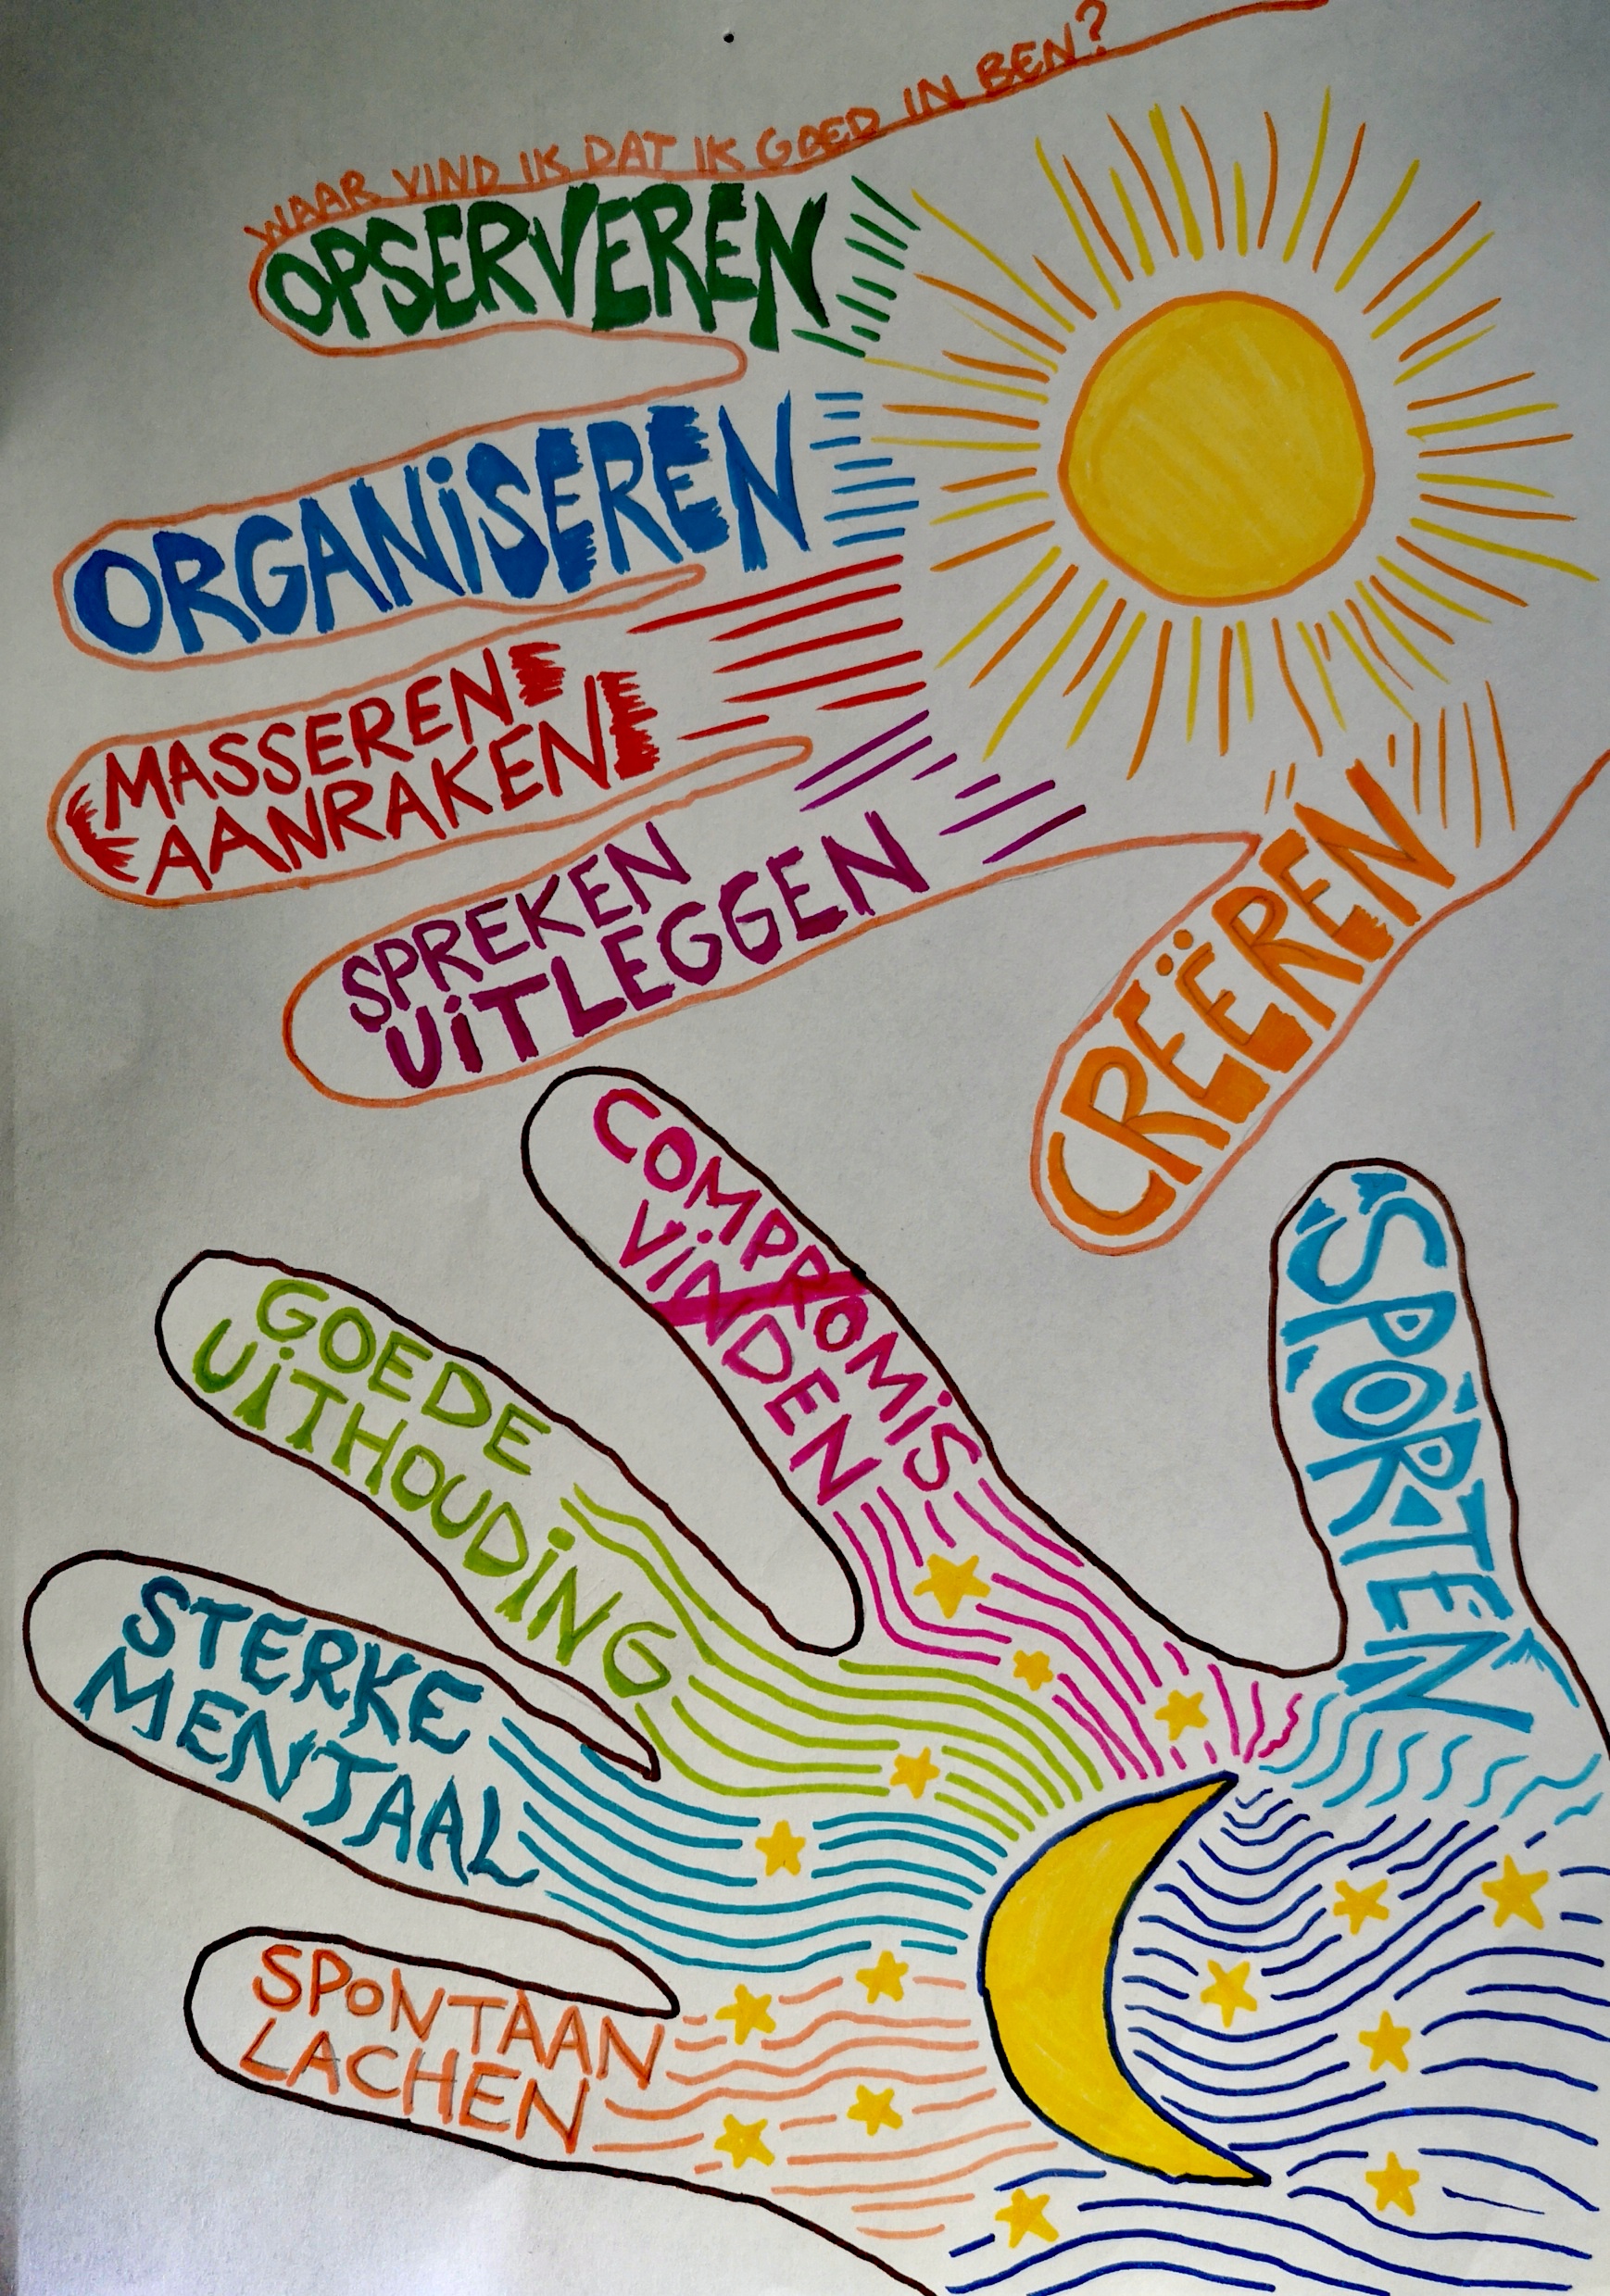 WAAR VIND IK DAT IK GOED IN BEN?
OPSERVEREN
ORGANiSEREN
MASSEREN
AANRAKEN
SPREKEN
UiTLEGGEN
CREËREN
COMPROMiS
ViNDEN
SPORTEN
GOEDE
UiTHOUDiNG
STERKE
MENTAAL
SPONTAAN
LACHEN